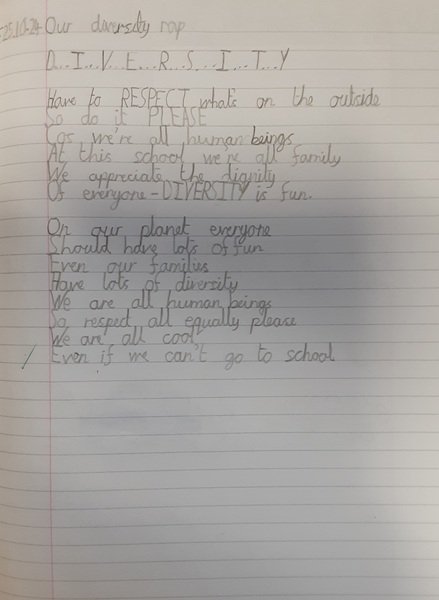 25.10.24 Our diversity rap
D...I...V...E...R...S...I...T...Y
Have to RESPECT what's on the outside
So do it PLEASE
Cos we're all human beings
At this school we're all family
We appreciate the dignity
Of everyone - DIVERSITY is fun.
On our planet everyone
Should have lots of fun
Even our familys
Have lots of diversity
We are all human beings
So respect all equally please
We are all cool
Even if we can't go to school